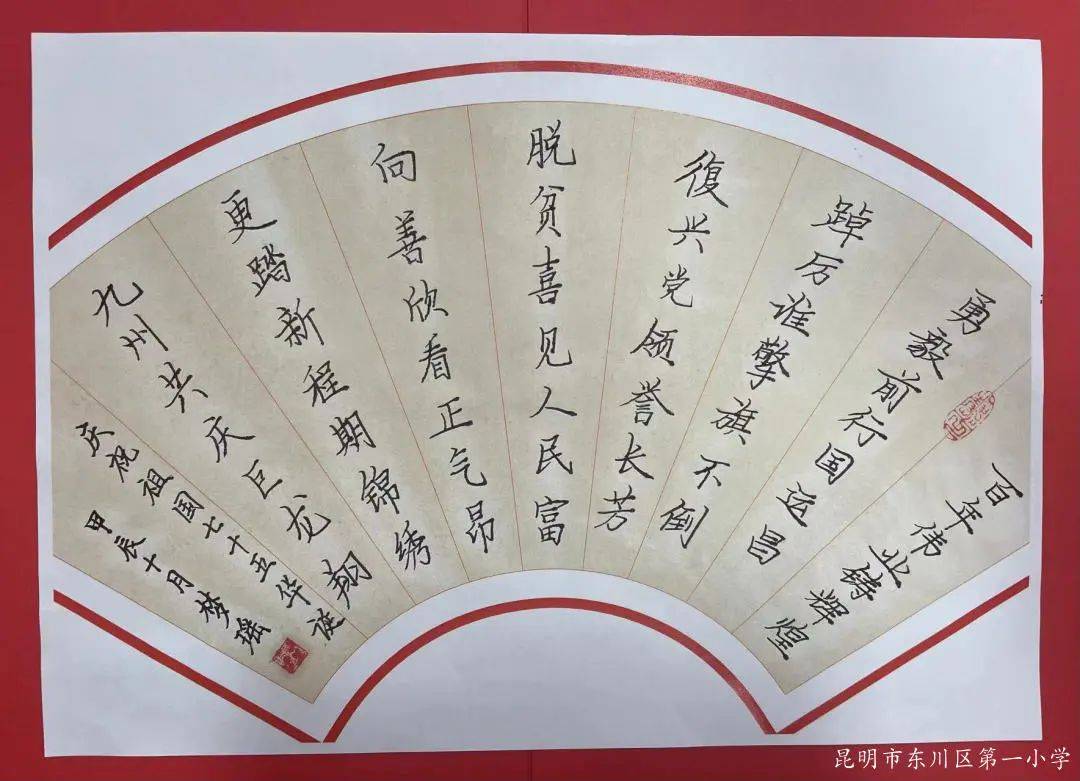 百年伟业铸辉煌
勇毅前行国运昌
踔厉谁擎旗不倒
復兴党领誉长芳
脱贫喜见人民富
向善欣看正气昂
更踏新程期锦绣
九州共庆巨龙翔
庆祝祖国七十五华诞
甲辰十月梦瑶
昆明市东川区第一小学